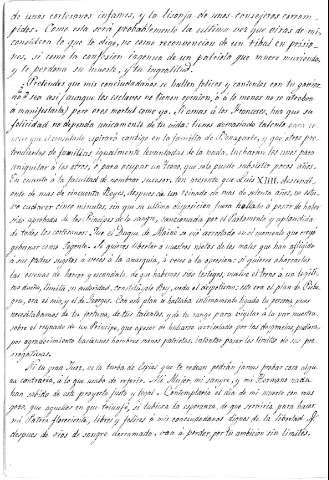 de unos cortesanos infames, y la lisonja de unos consejeros corrom-
pidos. Como esta será probablemente la ultima vez que oiras de mi,
considera lo que te digo, no como reconvencion de un rebar en prisio-
nes, si como la confesion ingenua de un patriota que muere muriendo,
y te perdona su muerte, y tu ingratitud.
¿Pretendes que mis conciudadanos se hallan felices y contentos con tu gobier-
no? sea así, aunque los esclavos no tienen opinion, ó á lo menos no se atreben
á manifestarla; pero eres mortal como yo. Si amas á los Franceses, haz que su
felicidad no dependa unicamente de tu vida: tienes demasiado talento para ig-
norar que el resultado aspirará contigo en la familia de Bonaparte, y que otros pre-
tendientes de familias igualmente levantadas de la nada, lucharán los unos para
aniquilar á los otros, ó para ocupar un Trono, que solo puede subsistir pocos años.
En cuanto á la facultad de nombrar sucesor, ten presente que Luis XIIII, descendi-
ente de mas de cincuenta Reyes, despues de un reinado de mas de setenta años, no estu-
vo cadaver cinco minutos, sin que su ultima disposicion fuera hollada á pesar de haber
sido aprobada de los Principes de la sangre, sancionada por el Parlamento y aplaudida
de todos los cortesanos. Fue el Duque de Maine o vió arrestado en el momento que creyó
gobernar como Regente. Si quieres libertar á nuestros nietos de los males que han afligido
á sus padres sugetos á veces á la anarquia, á veces á la opresion: si quieres ahorrarles
las escenas de horror y escandalo de que habemos sido testigos, vuelve el Trono á su legiti-
mo dueño, limita su autoridad, constitúyele Rey, veda el despotismo; este era el plan de Piche-
gru, era el mio y el de Georges. Con este plan se hallaba intimamente ligada tu persona, pues
necesitabamos de tu fortuna, de tus talentos, y de tu rango para vigilar á la par nuestra,
sobre el reynado de un Principe, que apesar de hallarse aleccionado por las desgracias, pudiera,
por agradecimiento hacia unos hombres menos patriotas, intentar pasar los limites de sus pre-
rogativas.
Ni tu gran Juez, ni la turba de Espias que te rodean podrán jamas probar cosa algu-
na contraria, á lo que acabo de referir. Mi Mujer, mi sangre, y mi Hermano nada
han sabido de este proyecto justo y legal. Contemplaria el dia de mi muerte con mas
gozo, que aquellos en que triunfé, si tubiera la esperanza, de que serviria para hacer
mi Patria floreciente, libre y felices á mis conciudadanos dignos de la libertad. Y
despues de años de sangre derramada, van á perder por tu ambicion sin limites.